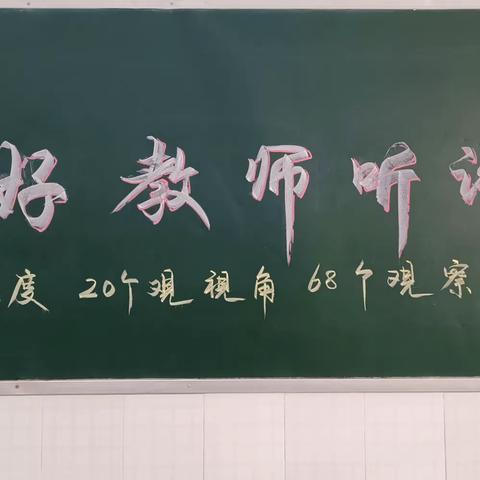 好教师听
度 20个观視角 68个观察